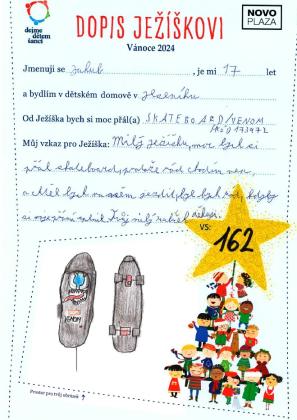 dejme
dětem
šanci
DOPIS JEŽÍŠKOVI
NOVO
PLAZA
Vánoce 2024
Jmenuji se Jakub, je mi 17 let
a bydlím v dětském domově v
Od Ježíška bych si moc přál(a) SKATEBOARD/VENOM
173972
Můj vzkaz pro Ježíška: Milý ježíšku, moc bych si
přál skateboard, protože rád chodím ven,
a měl bych na něm jezdit, byl bych rád, kdyby
se mi přání splnil. Tvůj milý
děkuji.
VS:
162
VENOM
Prostor pro tvůj obrázek